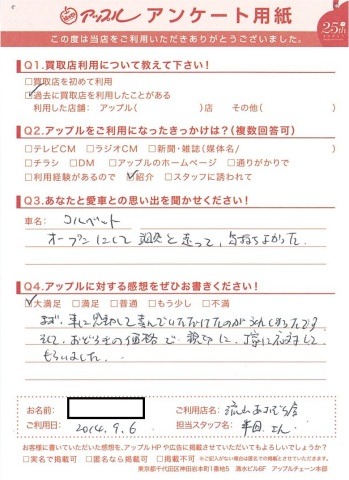 アップル アンケート用紙
この度は当店をご利用いただきありがとうございました。
25th
Q1.買取店利用について教えて下さい!
□買取店を初めて利用
☑過去に買取店を利用したことがある
利用した店舗: アップル( )店 その他( )
Q2.アップルをご利用になったきっかけは?(複数回答可)
□テレビCM □ラジオCM □新聞・雑誌(媒体名/ )
□チラシ □DM □アップルのホームページ □通りがかりで
□利用経験があるので ☑紹介 □スタッフに誘われて
Q3.あなたと愛車との思い出を聞かせください!
車名: コルベット
オープンにして 走って、気持ちよかった。
Q4.アップルに対する感想をぜひお書きください!
☑大満足 □満足 □普通 □もう少し □不満
まず、車に感動して喜んでいただけたのがうれしかったです
そして、おどろきの価格で 親切に、丁寧に対応して
もらいました。
お名前:
ご利用店名: 流山おおたかの森店
ご利用日: 2014.9.6
担当スタッフ名: さん
お客様に書いていただいた感想を、アップルHPや広告に掲載させていただいてもよろしいでしょうか?
□実名で掲載可 □匿名なら掲載可 □掲載不可 ※ご記入がない場合は匿名での掲載とさせていただきます。
東京都千代田区神田岩本町1番地5 清水ビル6F アップルチェーン本部